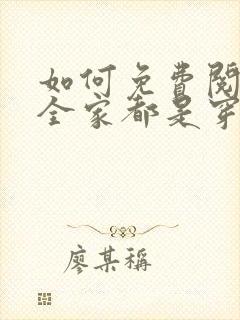 如何免費閱
全家都是穿
廖某稱